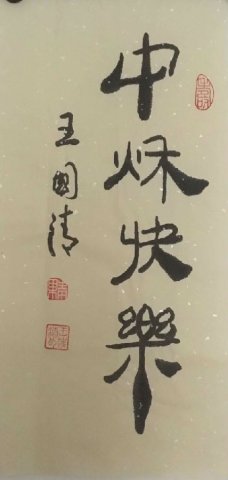 中秌快樂
王國清